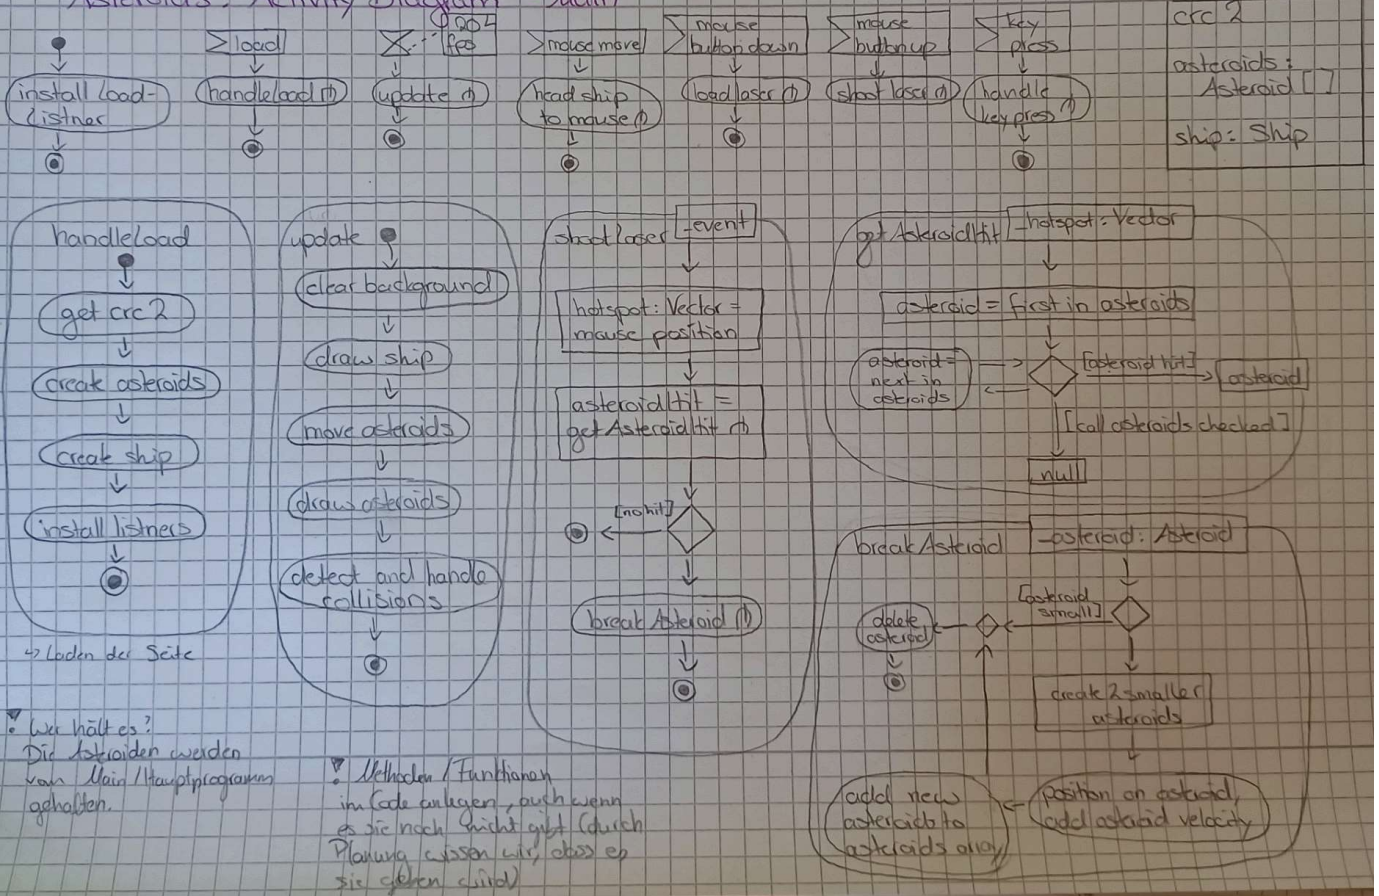 Asteroids: Activity Diagram Main
install load-
listner
load
handleload
204
update
mousemove
head ship
to mouse
mouse
button down
load laser
mouse
button up
shoot laser
key
press
handle
key press
crc 2
asteroids:
Asteroid []
ship: Ship
handleload
get crc 2
create asteroids
create ship
install listners
↳ Laden der Seite
update
clear background
draw ship
move asteroids
draw asteroids
detect and handle
collisions
shoot laser
event
hotspot: Vector =
mouse position
asteroidHit =
getAsteroidHit
[no hit]
break Asteroid
getAsteroidHit
hotspot: Vector
asteroid = first in asteroids
asteroid =
next in
asteroids
[asteroid hit]
asteroid
[all asteroids checked]
null
break Asteroid
asteroid: Asteroid
[asteroid
small]
delete
asteroid
create 2 smaller
asteroids
position on asteroid,
add asteroid velocity
add new
asteroids to
asteroids array
! Wer hält es?
Die Astroiden werden
von Main/Hauptprogramm
gehalten.
! Methoden/Funktionen
im Code anlegen, auch wenn
es sie noch nicht gibt (durch
Planung wissen wir, dass es
sie geben wird)